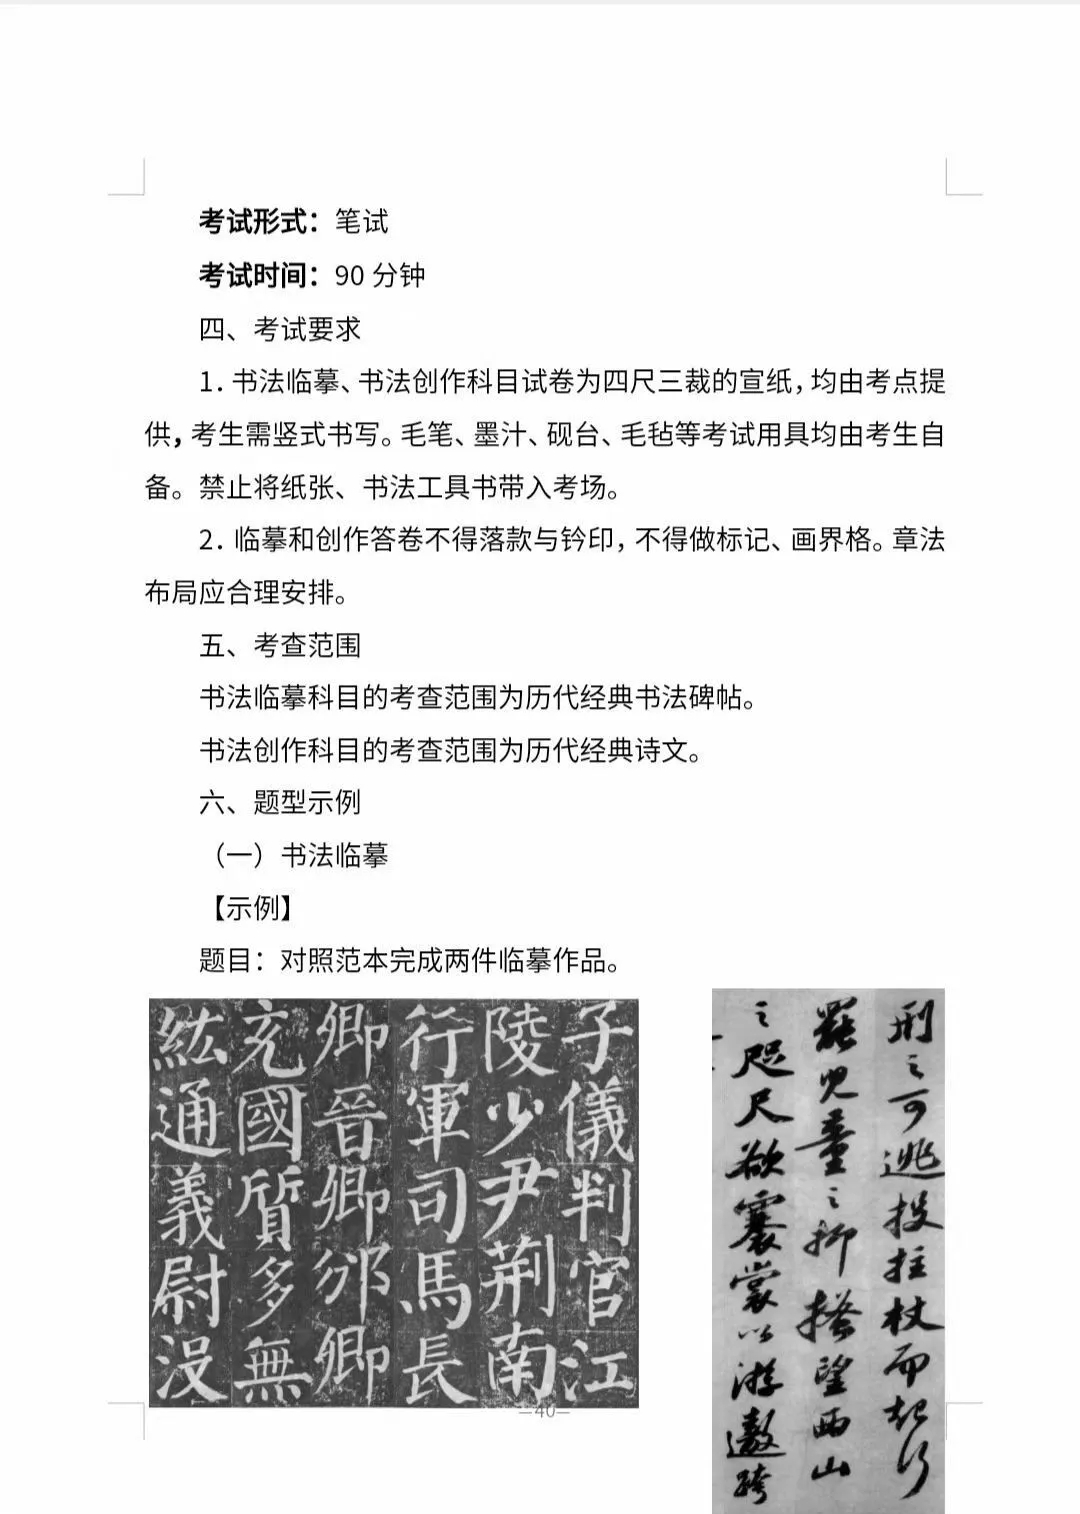 考试形式：笔试
考试时间：90 分钟
四、考试要求
1. 书法临摹、书法创作科目试卷为四尺三裁的宣纸，均由考点提
供，考生需竖式书写。毛笔、墨汁、砚台、毛毡等考试用具均由考生自
备。禁止将纸张、书法工具书带入考场。
2. 临摹和创作答卷不得落款与钤印，不得做标记、画界格。章法
布局应合理安排。
五、考查范围
书法临摹科目的考查范围为历代经典书法碑帖。
书法创作科目的考查范围为历代经典诗文。
六、题型示例
（一）书法临摹
【示例】
题目：对照范本完成两件临摹作品。
子儀判官江
陵少尹荆南
行軍司馬長
卿晉卿邠卿
充國質多無
紘通義尉没
刑之可逃投拄杖而起行
罷兒童之抑搔望西山
之咫尺欲褰裳以游遨跨
—40—